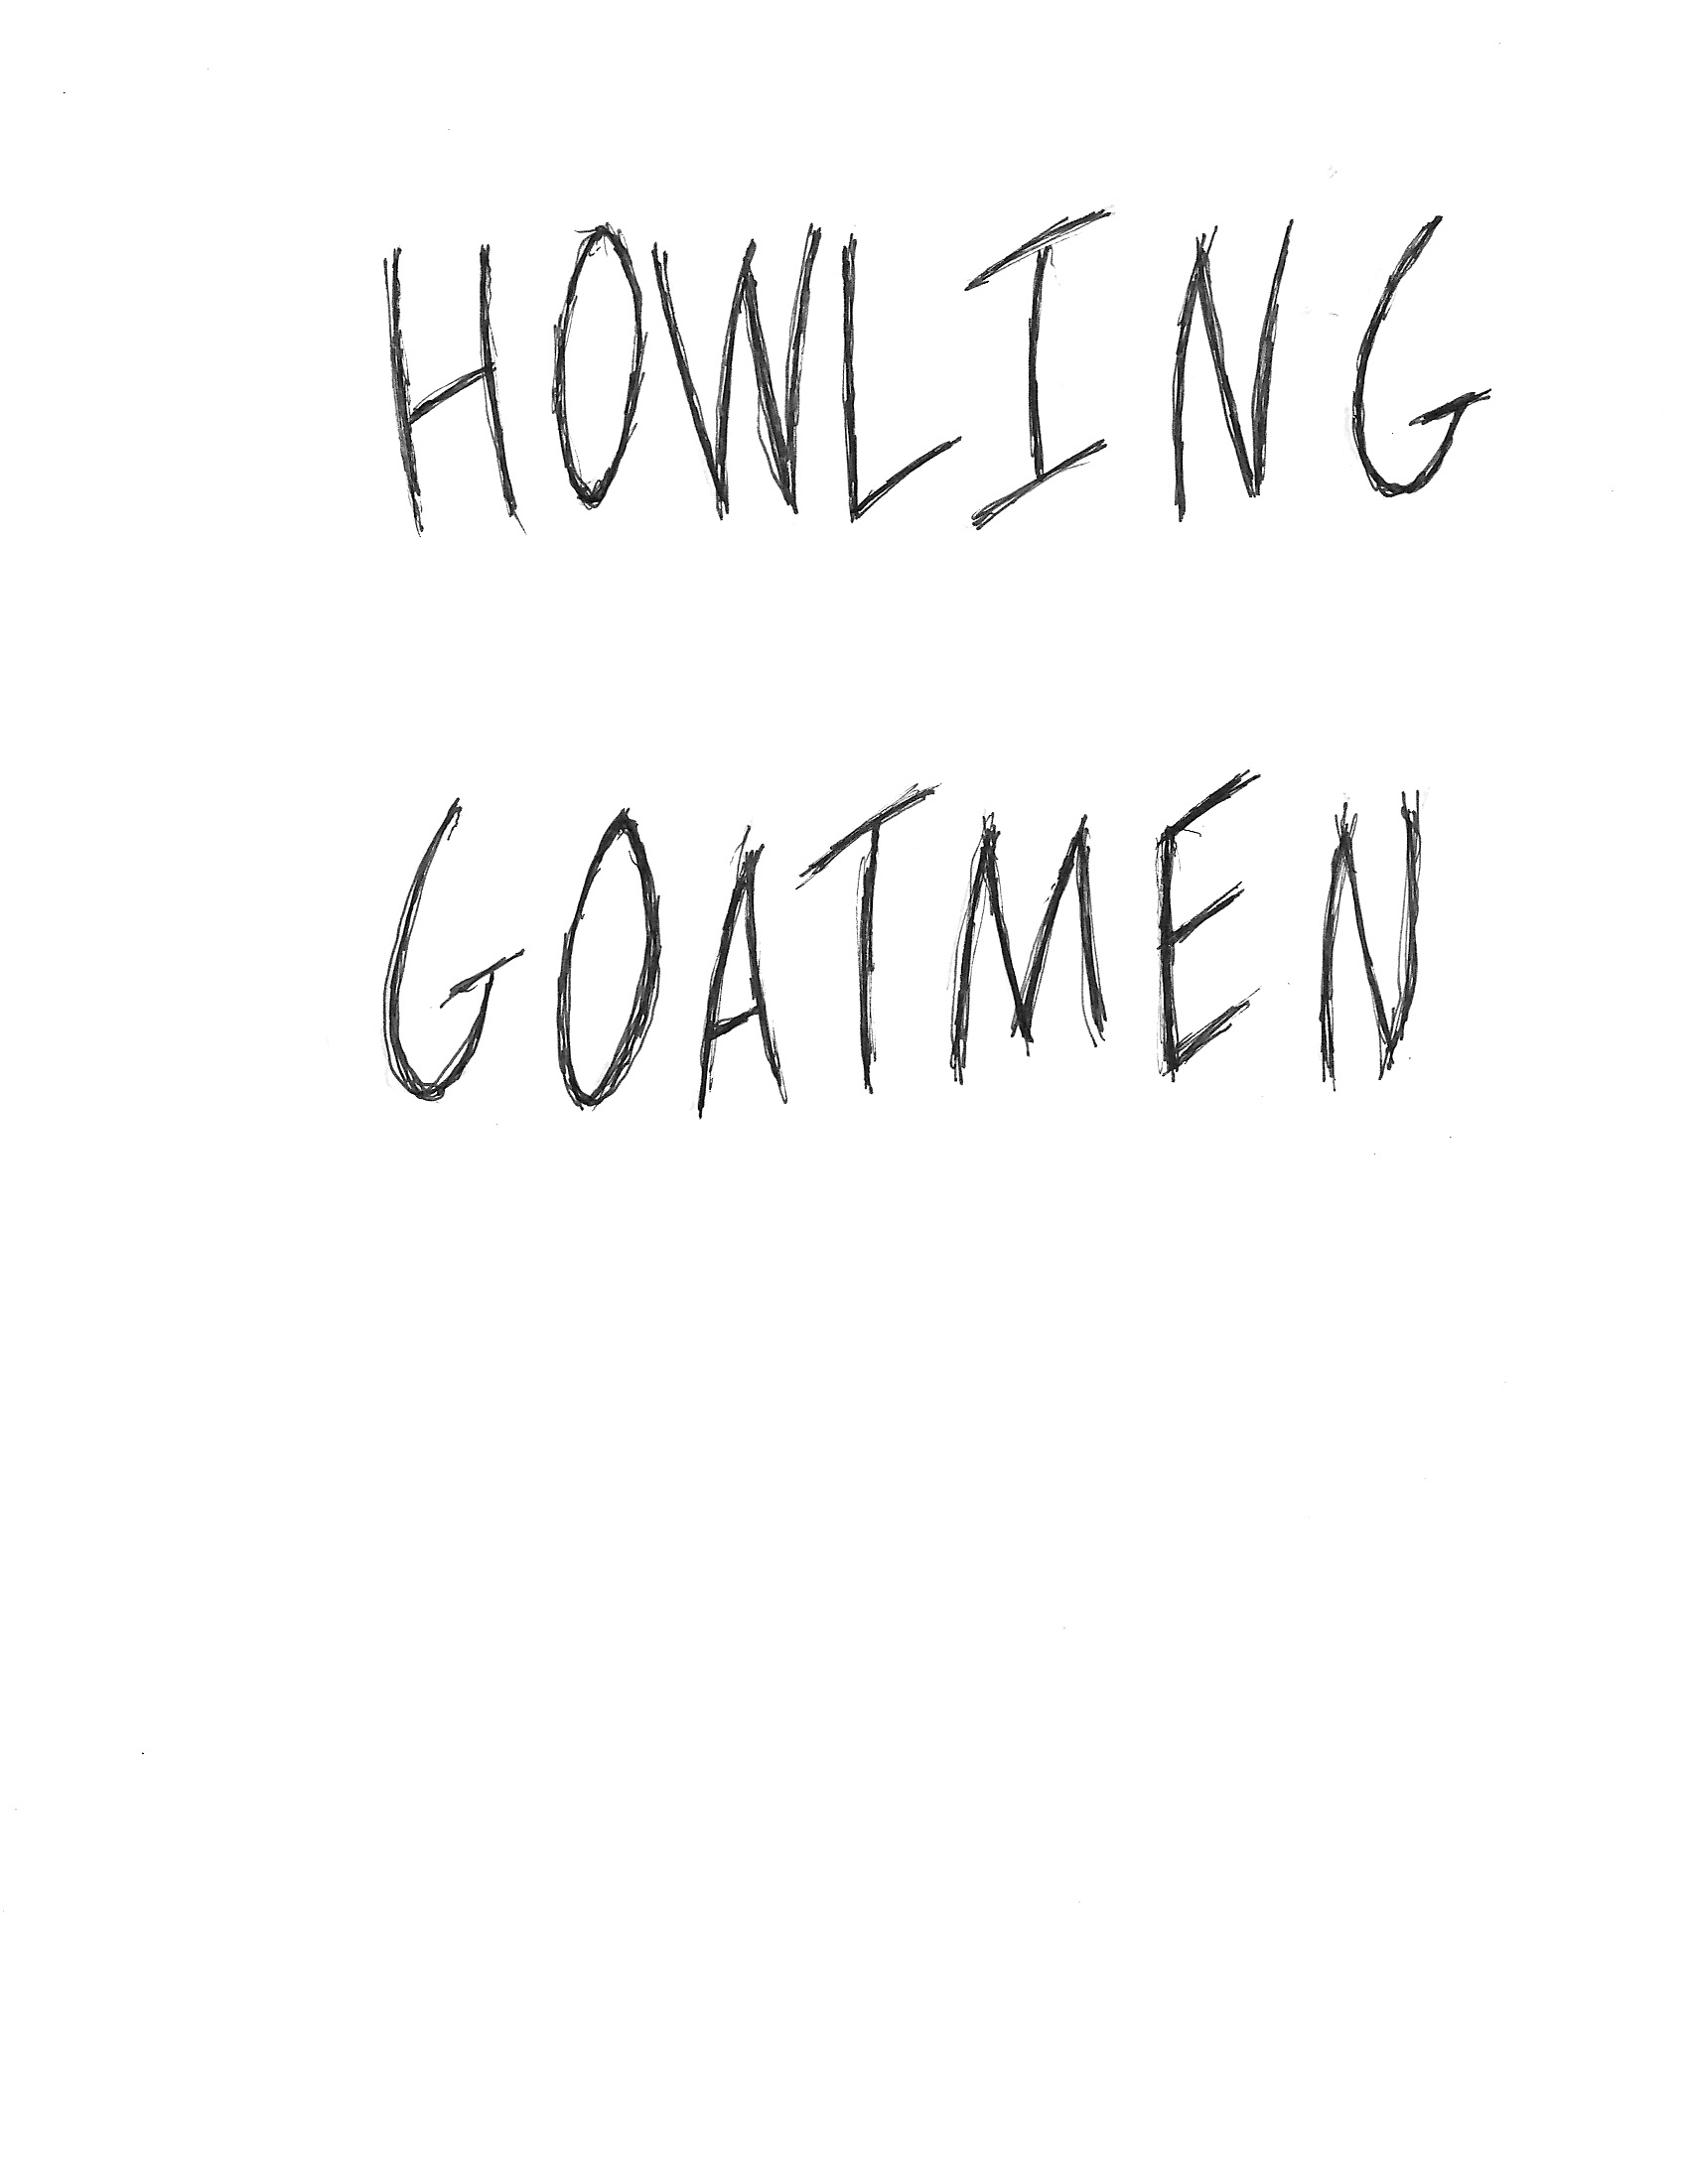 HOWLING
GOATMEN